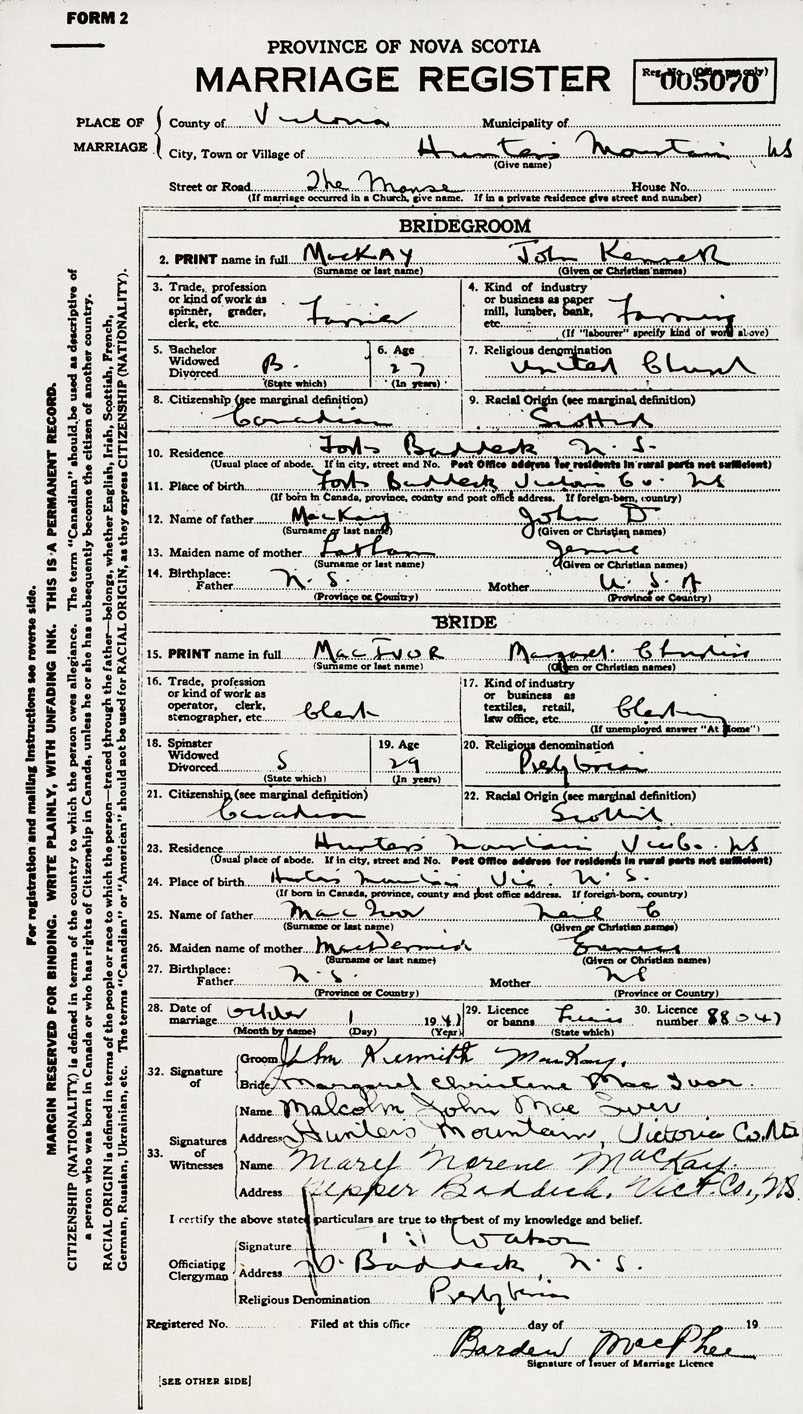 FORM 2
PROVINCE OF NOVA SCOTIA
MARRIAGE REGISTER
Reg. No. (Office use only)
005070
PLACE OF MARRIAGE
County of Victoria Municipality of
City, Town or Village of Hunters Mountain NS
(Give name)
Street or Road The Manse House No.
(If marriage occurred in a Church, give name. If in a private residence give street and number)
BRIDEGROOM
2. PRINT name in full MacKAY John Kenneth
(Surname or last name) (Given or Christian names)
3. Trade, profession or kind of work as spinner, grader, clerk, etc. Farmer
4. Kind of industry or business as paper mill, lumber, bank, etc. Farming
(If "labourer" specify kind of work above)
5. Bachelor Widowed Divorced B.
(State which)
6. Age 27
(In years)
7. Religious denomination United Church
8. Citizenship (see marginal definition) Canadian
9. Racial Origin (see marginal definition) Scottish
10. Residence Forks Baddeck N. S.
(Usual place of abode. If in city, street and No. Post Office address for residents in rural parts not sufficient)
11. Place of birth Forks Baddeck Victoria Co. NS
(If born in Canada, province, county and post office address. If foreign-born, country)
12. Name of father MacKay John D
(Surname or last name) (Given or Christian names)
13. Maiden name of mother Latham Jennie
(Surname or last name) (Given or Christian names)
14. Birthplace: Father N. S. Mother U. S. A
(Province or Country) (Province or Country)
BRIDE
15. PRINT name in full MacIVOR Margaret Christine
(Surname or last name) (Given or Christian names)
16. Trade, profession or kind of work as operator, clerk, stenographer, etc. Clerk
17. Kind of industry or business as textiles, retail, law office, etc.
(If unemployed answer "At Home")
18. Spinster Widowed Divorced S
(State which)
19. Age 29
(In years)
20. Religious denomination Presbyterian
21. Citizenship (see marginal definition) Canadian
22. Racial Origin (see marginal definition) Scottish
23. Residence Hunters Mountain Vic Co. NS
(Usual place of abode. If in city, street and No. Post Office address for residents in rural parts not sufficient)
24. Place of birth Hunters Mountain Vic. N. S.
(If born in Canada, province, county and post office address. If foreign-born, country)
25. Name of father MacIvor Neil C
(Surname or last name) (Given or Christian names)
26. Maiden name of mother MacDermid
(Surname or last name) (Given or Christian names)
27. Birthplace: Father N. S. Mother NS
(Province or Country) (Province or Country)
28. Date of marriage October 1 1947
(Month by name) (Day) (Year)
29. Licence or banns
(State which)
30. Licence number 88047
32. Signature of
Groom John Kenneth MacKay.
Bride Margaret Christene MacIvor.
33. Signatures of Witnesses
Name Malcolm John MacIver
Address Hunters Mountain, Victoria Co. NS
Name Mary Norene MacKay.
Address Upper Baddeck, Vict. Co., N.S.
I certify the above stated particulars are true to the best of my knowledge and belief.
Officiating Clergyman
Signature Watson
Address Baddeck, N. S.
Religious Denomination Presbyterian
Registered No. Filed at this office day of 19
Barden MacPhee
Signature of Issuer of Marriage Licence
[SEE OTHER SIDE]
For registration and mailing instructions see reverse side.
MARGIN RESERVED FOR BINDING. WRITE PLAINLY, WITH UNFADING INK. THIS IS A PERMANENT RECORD.
CITIZENSHIP (NATIONALITY) is defined in terms of the country to which the person owes allegiance. The term "Canadian" should be used as descriptive of
a person who was born in Canada or who has rights of Citizenship in Canada, unless he or she has subsequently become the citizen of another country.
RACIAL ORIGIN is defined in terms of the people or race to which the person—traced through the father—belongs, whether English, Irish, Scottish, French,
German, Russian, Ukrainian, etc. The terms "Canadian" or "American" should not be used for RACIAL ORIGIN, as they express CITIZENSHIP (NATIONALITY).